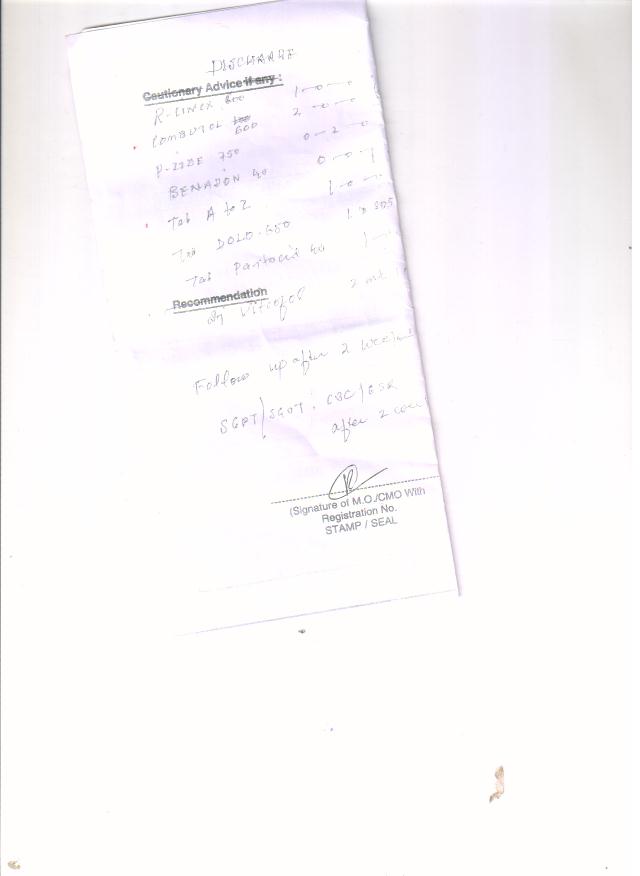 DISCHARGE
Cautionary Advice if any :
R-CINEX 600 1-0-0
COMBUTOL 600 2-0-0
P-ZIDE 750 0-2-0
BENADON 40 0-0-1
Tab A to Z 1-0-
Tab DOLO-650 1 SOS
Tab Pantocid 40 1-
Recommendation
2 ml
Follow up after 2 weeks
SGPT/SGOT, CBC/ESR
after 2
(Signature of M.O./CMO With
Registration No.
STAMP / SEAL